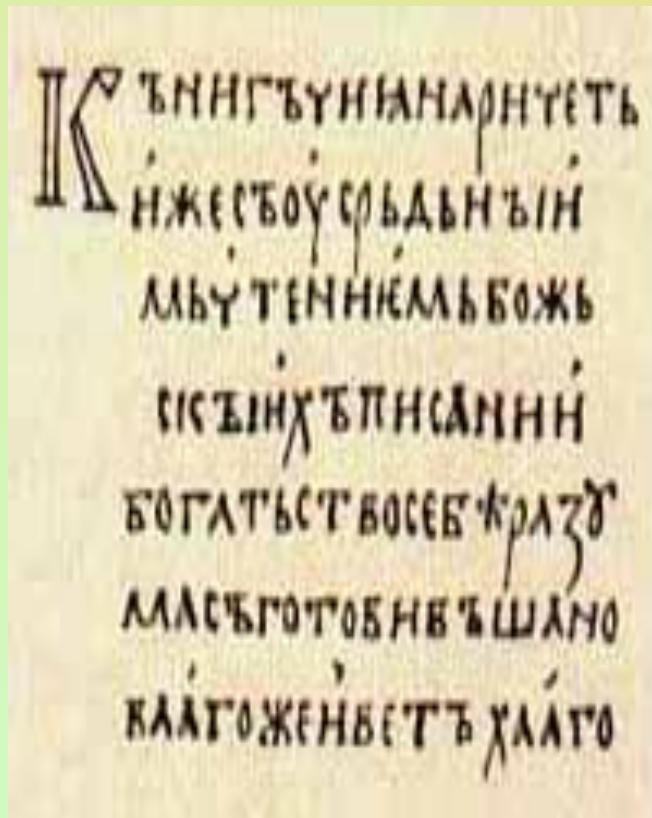 КЪНИГЪЧИꙖНАРИЧЕТЬ
И́ЖЕСЪОУ̇СРЬДЬНЪІИ́
МЬЧ̇ТЕНИѤ́МЬБОЖЬ
СКЪІИ̇ХЪПИСАНИИ̇
БОГАТЬСТВОСЕБѢРАЗꙊ
МАСЪГОТОВИВЪШАНО
ВАА́ГОЖЕИ̇ВЕТЪХАА́ГО